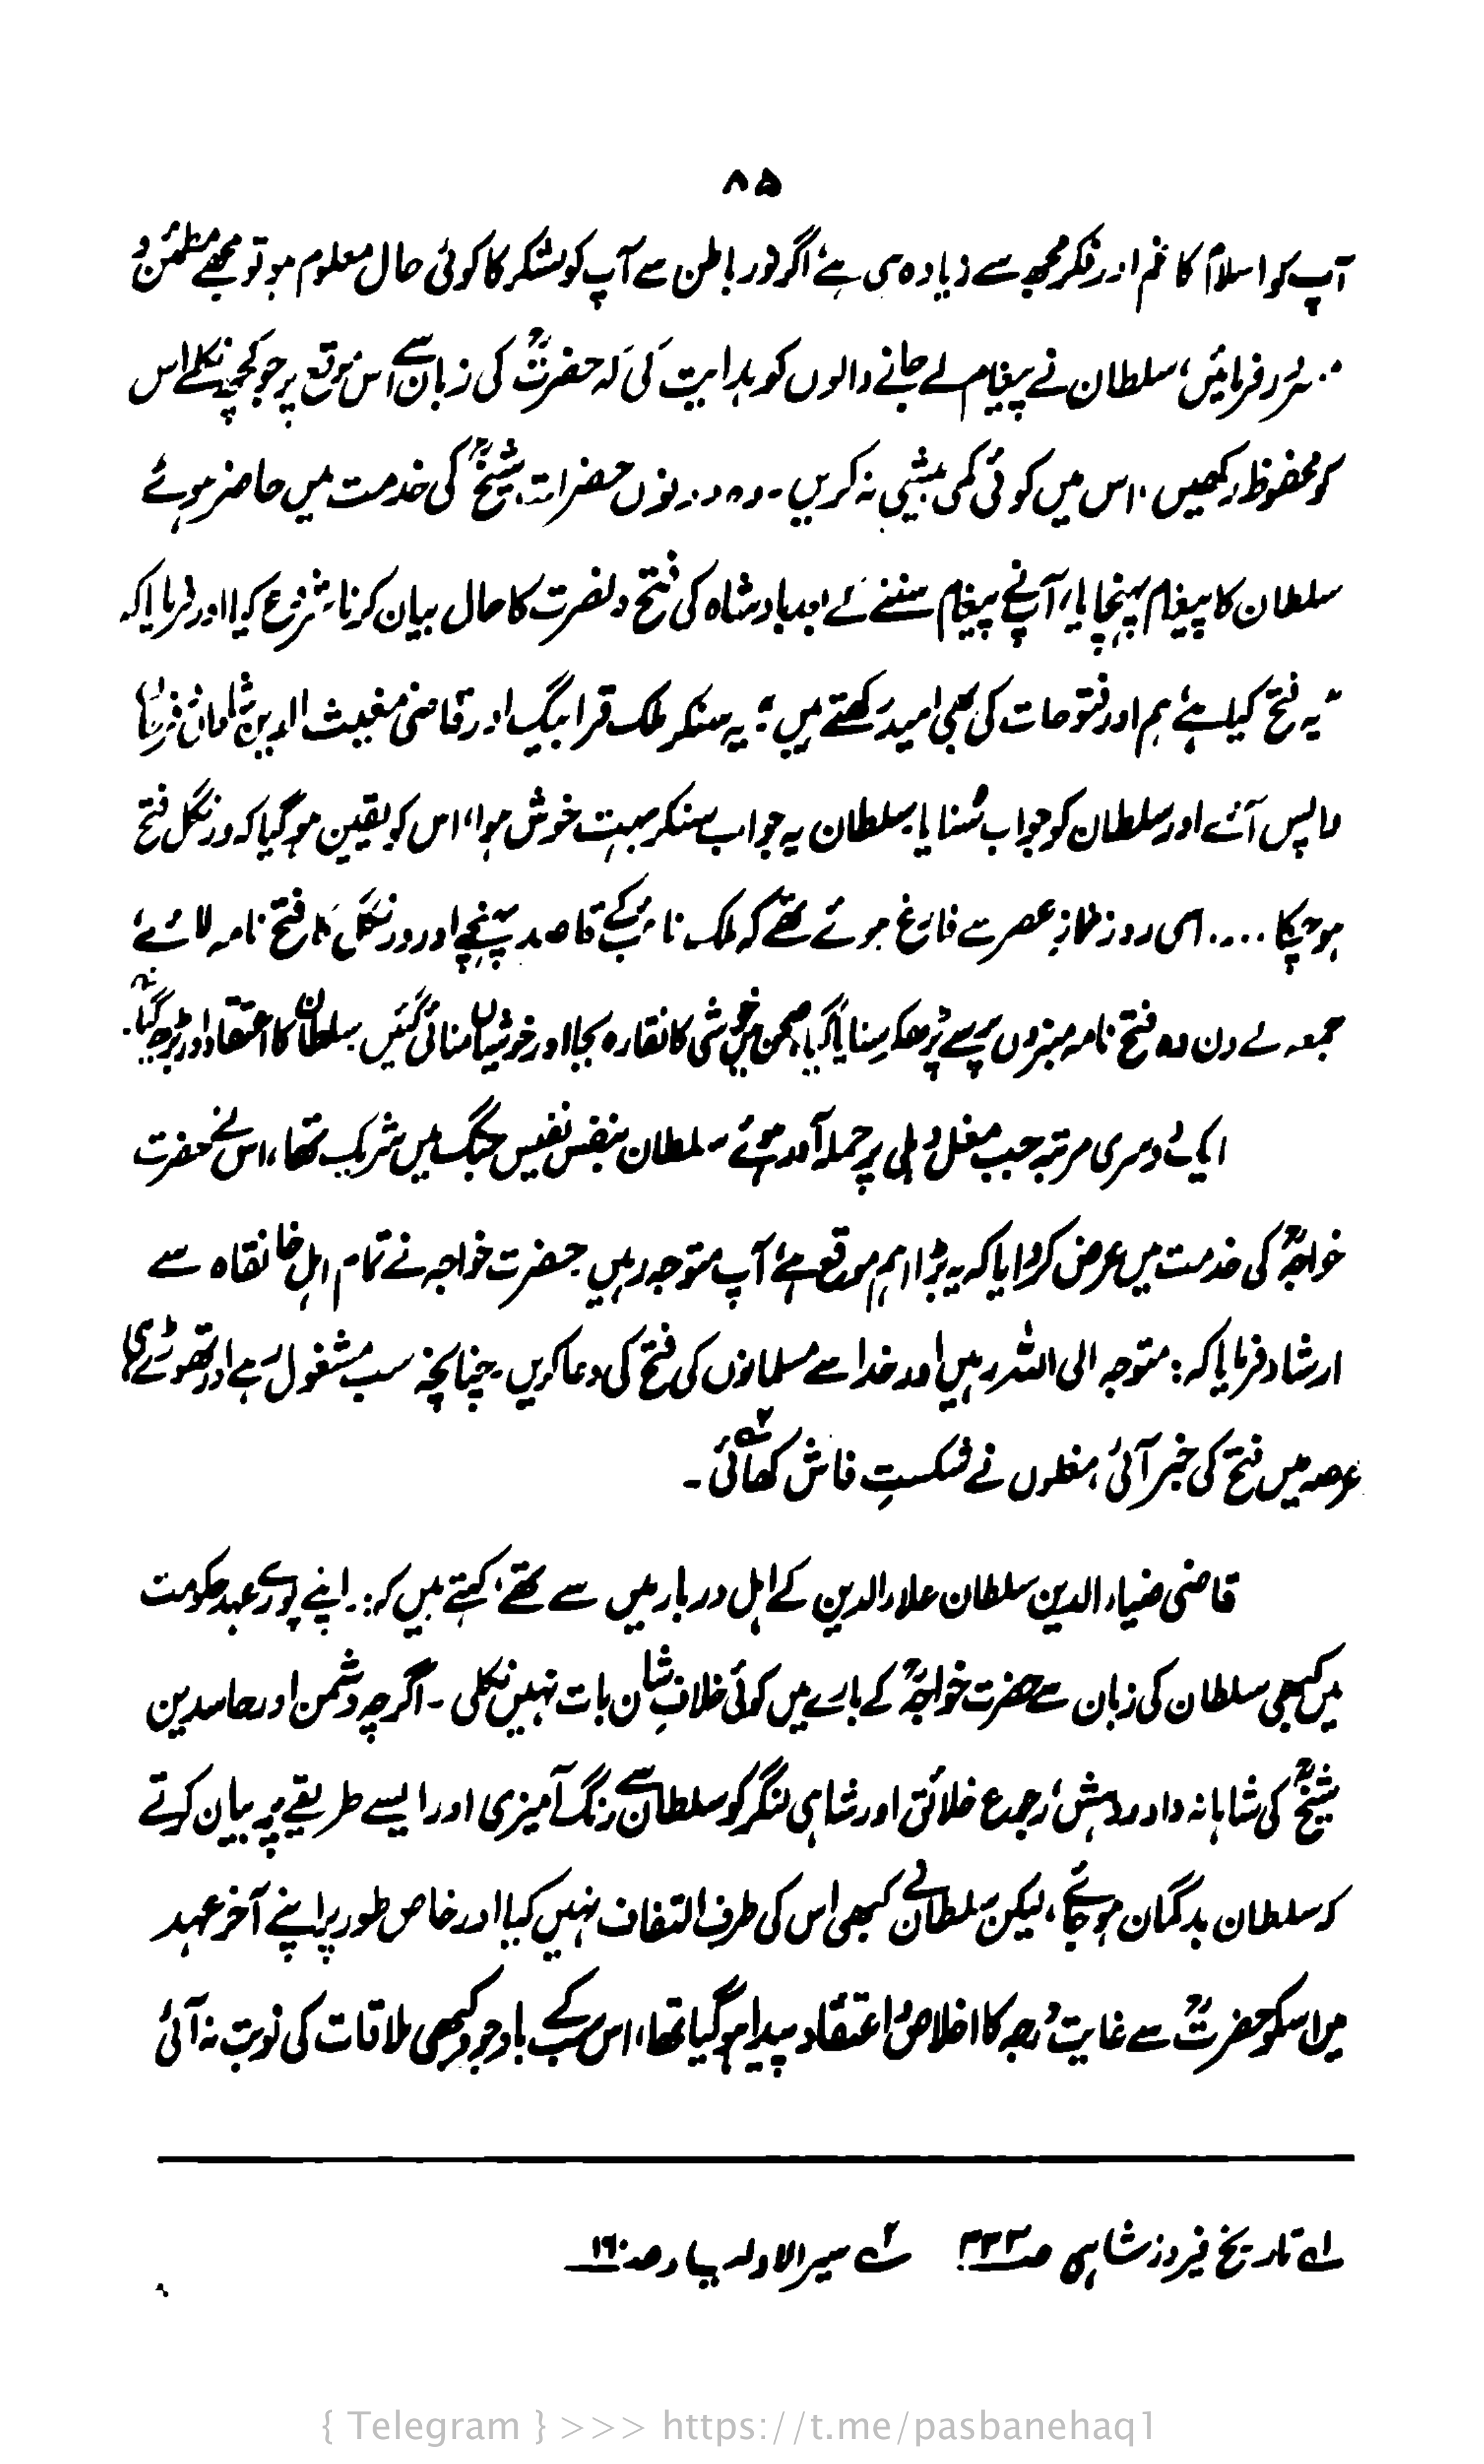 ۸۵
آپ کو اسلام کا غم اور فکر مجھ سے زیادہ ہی ہے، اگر نور باطن سے آپ کو لشکر کا کوئی حال معلوم ہو تو مجھے مطمئن و
مسرور فرمائیں، سلطان نے پیغام لے جانے والوں کو ہدایت کی کہ حضرتؒ کی زبان سے اس موقع پر جو کچھ نکلے اس
کو محفوظ رکھیں، اس میں کوئی کمی بیشی نہ کریں۔ وہ دونوں حضرات شیخؒ کی خدمت میں حاضر ہوئے
سلطان کا پیغام پہنچایا، آپ نے پیغام سننے کے بعد بادشاہ کی فتح و نصرت کا حال بیان کرنا شروع کیا اور فرمایا کہ
"یہ فتح کیا ہے، ہم اور فتوحات کی بھی امید رکھتے ہیں" یہ سنکر ملک قرابیگ اور قاضی مغیث الدین شاداں فرحاں
واپس آئے اور سلطان کو جواب سُنایا، سلطان یہ جواب سنکر بہت خوش ہوا، اس کو یقین ہو گیا کہ ورنگل فتح
ہو چکا .... اسی روز نماز عصر سے فارغ ہوئے تھے کہ ملک نائب کے قاصد پہنچے اور ورنگل کا فتح نامہ لائے
جمعہ کے دن وہ فتح نامہ منبروں پر سے پڑھکر سنایا گیا، صحن میں خوشی کا نقارہ بجا اور خوشیاں منائی گئیں، سلطان کا اعتقاد اور بڑھ گیا۔
ایک دوسری مرتبہ جب مغل دہلی پر حملہ آور ہوئے سلطان بنفس نفیس جنگ میں شریک تھا، اس نے حضرت
خواجہؒ کی خدمت میں عرض کروایا کہ یہ بڑا اہم موقع ہے، آپ متوجہ رہیں، حضرت خواجہ نے تمام اہل خانقاہ سے
ارشاد فرمایا کہ: متوجہ الی اللہ رہیں اور خدا سے مسلمانوں کی فتح کی دعا کریں۔ چنانچہ سب مشغول رہے اور تھوڑے ہی
عرصہ میں فتح کی خبر آئی، مغلوں نے شکستِ فاش کھائی۔ ۲ے
قاضی ضیاء الدین سلطان علاء الدین کے اہل دربار میں سے تھے، کہتے ہیں کہ:۔ اپنے پورے عہد حکومت
میں کبھی سلطان کی زبان سے حضرت خواجہؒ کے بارے میں کوئی خلافِ شان بات نہیں نکلی۔ اگرچہ دشمن اور حاسدین
شیخؒ کی شاہانہ داد و دہش، رجوع خلائق اور شاہی لنگر کو سلطان سے رنگ آمیزی اور ایسے طریقے پر بیان کرتے
کہ سلطان بدگمان ہو جائے، لیکن سلطان نے کبھی اس کی طرف التفات نہیں کیا اور خاص طور پر اپنے آخر عہد
میں اسکو حضرتؒ سے غایت درجہ کا اخلاص و اعتقاد پیدا ہو گیا تھا، اس سب کے باوجود کبھی ملاقات کی نوبت نہ آئی
۱ے تاریخ فیروز شاہی صـ۳۳۳ ۲ے سیر الاولیاء صـ۱۶۰
{ Telegram } >>> https://t.me/pasbanehaq1